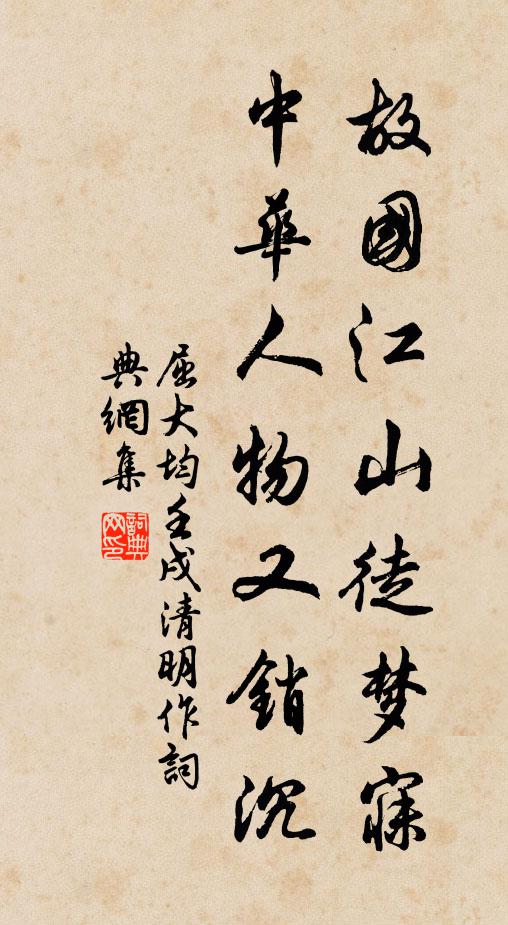 故國江山徒梦寐
中華人物又銷沉
屈大均壬戌清明作詞
典網集
詞典網印